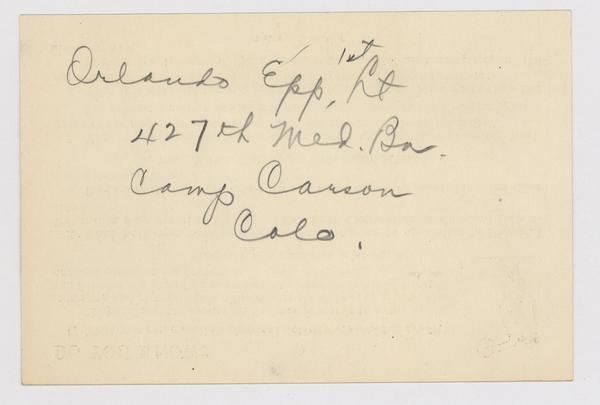 Orlando Epp, 1st Lt
427th Med. Bn.
Camp Carson
Colo.